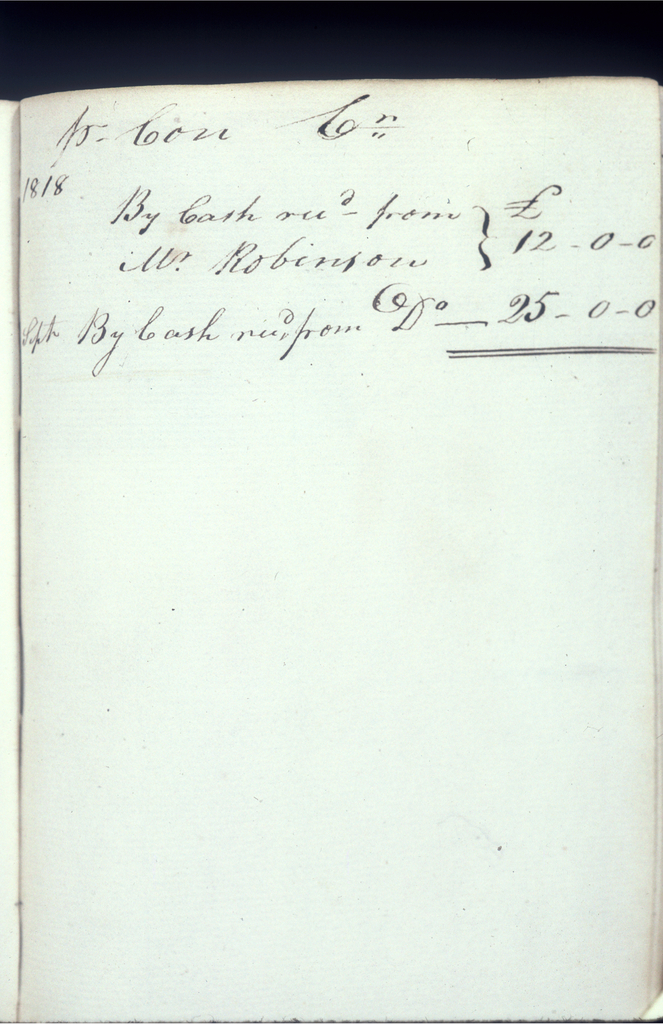 pr Con Cr
1818
By Cash recd from £
Mr Robinson } 12-0-0
Sept By Cash recd from Do — 25-0-0